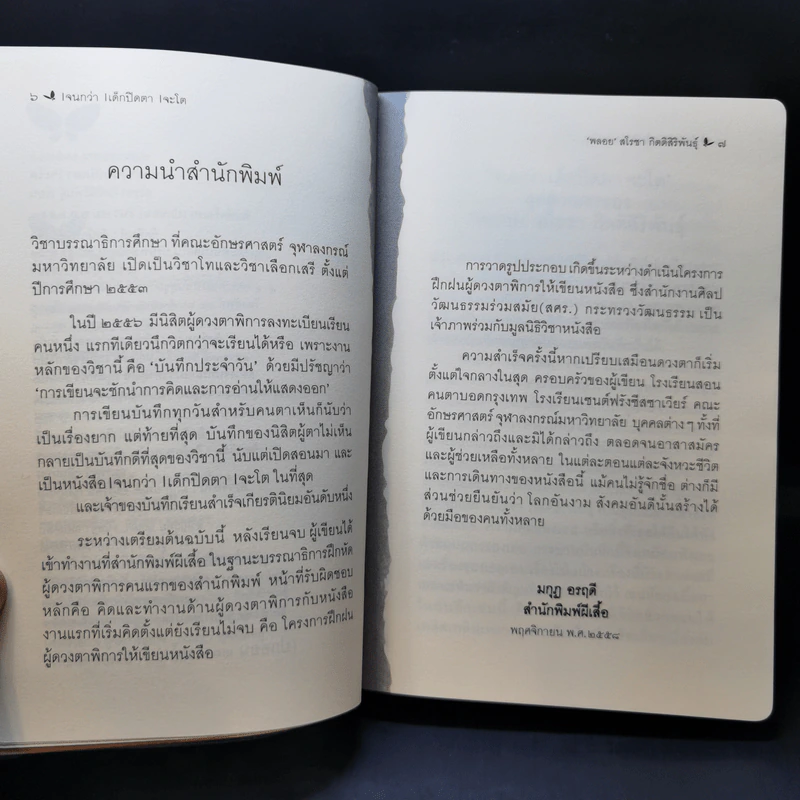 ๖ จนกว่า เด็กปิดตา จะโต
ความนำสำนักพิมพ์
วิชาบรรณาธิการศึกษา ที่คณะอักษรศาสตร์ จุฬาลงกรณ์
มหาวิทยาลัย เปิดเป็นวิชาโทและวิชาเลือกเสรี ตั้งแต่
ปีการศึกษา ๒๕๕๓
ในปี ๒๕๕๖ มีนิสิตผู้ดวงตาพิการลงทะเบียนเรียน
คนหนึ่ง แรกทีเดียวนึกวิตกว่าจะเรียนได้หรือ เพราะงาน
หลักของวิชานี้ คือ ‘บันทึกประจำวัน’ ด้วยมีปรัชญาว่า
‘การเขียนจะชักนำการคิดและการอ่านให้แสดงออก’
การเขียนบันทึกทุกวันสำหรับคนตาเห็นก็นับว่า
เป็นเรื่องยาก แต่ท้ายที่สุด บันทึกของนิสิตผู้ตาไม่เห็น
กลายเป็นบันทึกดีที่สุดของวิชานี้ นับแต่เปิดสอนมา และ
เป็นหนังสือ จนกว่า เด็กปิดตา จะโต ในที่สุด
และเจ้าของบันทึกเรียนสำเร็จเกียรตินิยมอันดับหนึ่ง
ระหว่างเตรียมต้นฉบับนี้ หลังเรียนจบ ผู้เขียนได้
เข้าทำงานที่สำนักพิมพ์ผีเสื้อ ในฐานะบรรณาธิการฝึกหัด
ผู้ดวงตาพิการคนแรกของสำนักพิมพ์ หน้าที่รับผิดชอบ
หลักคือ คิดและทำงานด้านผู้ดวงตาพิการกับหนังสือ
งานแรกที่เริ่มคิดตั้งแต่ยังเรียนไม่จบ คือ โครงการฝึกฝน
ผู้ดวงตาพิการให้เขียนหนังสือ
‘พลอย’ สโรชา กิตติสิริพันธุ์ ๗
การวาดรูปประกอบ เกิดขึ้นระหว่างดำเนินโครงการ
ฝึกฝนผู้ดวงตาพิการให้เขียนหนังสือ ซึ่งสำนักงานศิลป
วัฒนธรรมร่วมสมัย(สศร.) กระทรวงวัฒนธรรม เป็น
เจ้าภาพร่วมกับมูลนิธิวิชาหนังสือ
ความสำเร็จครั้งนี้หากเปรียบเสมือนดวงตาก็เริ่ม
ตั้งแต่ใจกลางในสุด ครอบครัวของผู้เขียน โรงเรียนสอน
คนตาบอดกรุงเทพ โรงเรียนเซนต์ฟรังซีสซาเวียร์ คณะ
อักษรศาสตร์ จุฬาลงกรณ์มหาวิทยาลัย บุคคลต่างๆ ทั้งที่
ผู้เขียนกล่าวถึงและมิได้กล่าวถึง ตลอดจนอาสาสมัคร
และผู้ช่วยเหลือทั้งหลาย ในแต่ละตอนแต่ละจังหวะชีวิต
และการเดินทางของหนังสือนี้ แม้คนไม่รู้จักชื่อ ต่างก็มี
ส่วนช่วยยืนยันว่า โลกอันงาม สังคมอันดีนั้นสร้างได้
ด้วยมือของคนทั้งหลาย
มกุฏ อรฤดี
สำนักพิมพ์ผีเสื้อ
พฤศจิกายน พ.ศ.๒๕๕๘